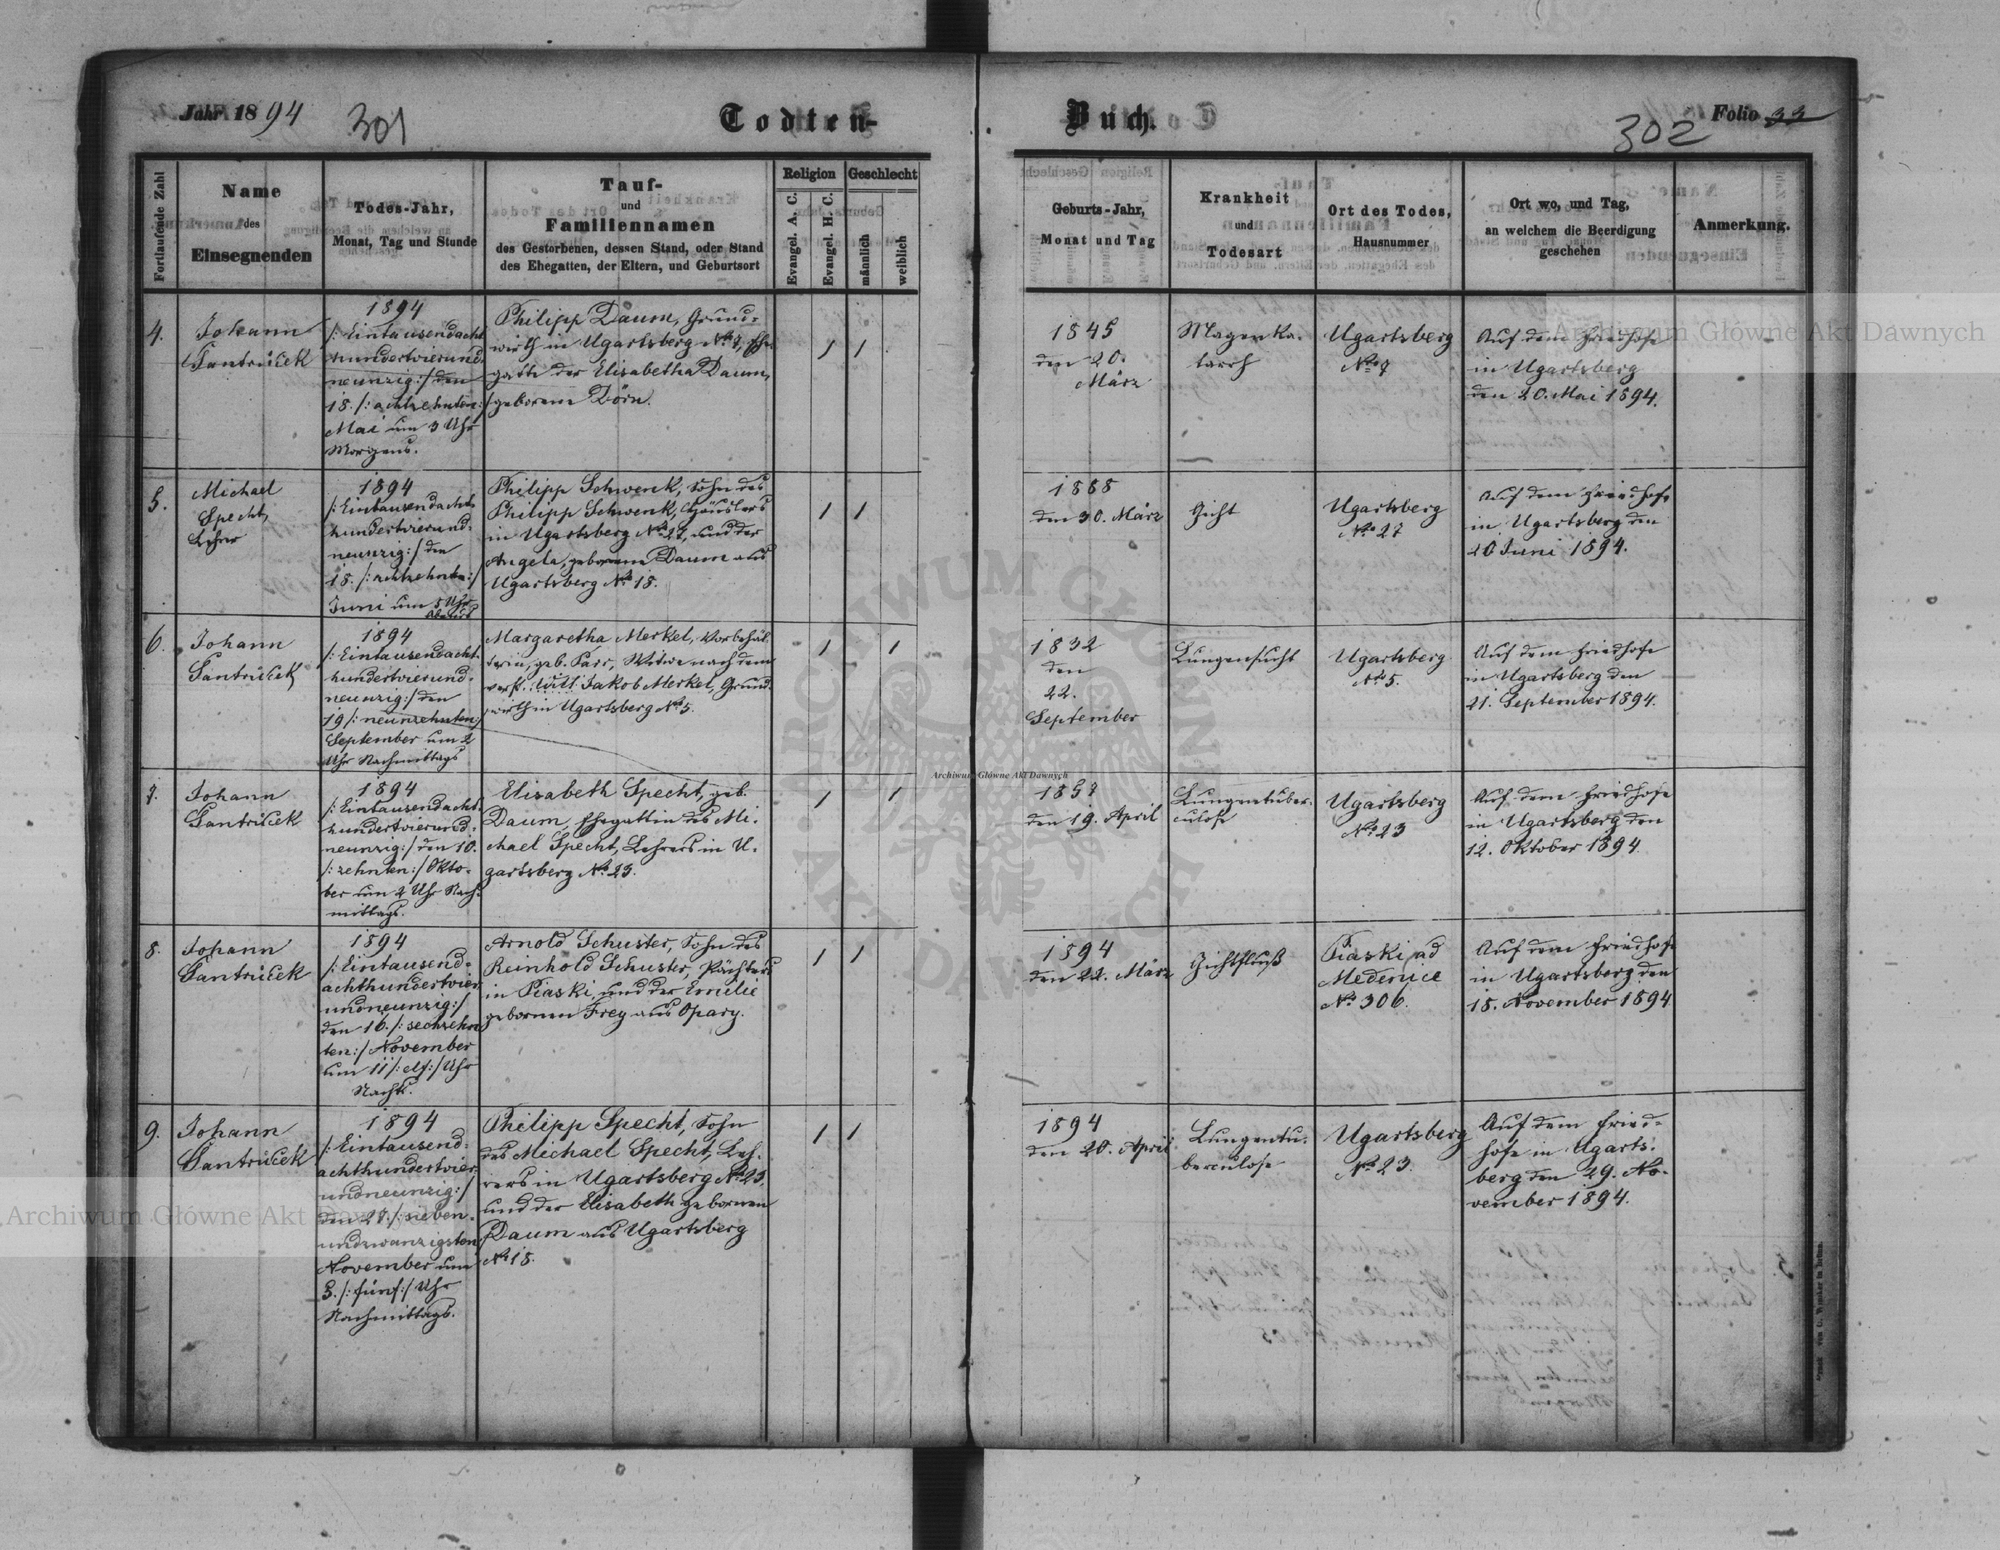 Jahr 1894
301
Todten-
Buch.
302
Folio 33
Fortlaufende Zahl
Name
des
Einsegnenden
Todes-Jahr,
Monat, Tag und Stunde
Tauf-
und
Familiennamen
des Gestorbenen, dessen Stand, oder Stand
des Ehegatten, der Eltern, und Geburtsort
Religion
Evangel. A. C.
Evangel. H. C.
Geschlecht
männlich
weiblich
Geburts-Jahr,
Monat und Tag
Krankheit
und
Todesart
Ort des Todes,
Hausnummer
Ort wo, und Tag,
an welchem die Beerdigung
geschehen
Anmerkung.
4.
Johann
Santruček
1894
/: Eintausendacht
hundertvierund-
neunzig :/ den
18. /: achtzehnten :/
Mai um 3 Uhr
Morgens.
Philipp Daum, Grund-
wirth in Ugartsberg No 7, Ehe-
gatte der Elisabetha Daum,
geborene Dörn.
1 1
1845
den 20.
März
Magenka-
tarrh
Ugartsberg
No 7
Auf dem Friedhofe
in Ugartsberg
den 20. Mai 1894.
5.
Michael
Specht,
Lehrer
1894
/: Eintausendacht-
hundertvierund-
neunzig :/ den
18. /: achtzehnten :/
Juni um 5 Uhr
Abends
Philipp Schwenk, Sohn des
Philipp Schwenk, Häuslers
in Ugartsberg No 27, und der
Angela, geborene Daum aus
Ugartsberg No 18.
1 1
1888
den 30. März
Gicht
Ugartsberg
No 27
Auf dem Friedhofe
in Ugartsberg den
20 Juni 1894.
6.
Johann
Santruček
1894
/: Eintausendacht-
hundertvierund-
neunzig :/ den
19 /: neunzehnten :/
September um 2
Uhr Nachmittags
Margaretha Merkel, Vorbehäl-
terin, geb. Parr, Witwe nach dem
verst. Jakob Merkel, Grund-
wirth in Ugartsberg No 5.
1 1
1832
den
22.
September
Lungensucht
Ugartsberg
No 5.
Auf dem Friedhofe
in Ugartsberg den
21. September 1894.
7.
Johann
Santruček
1894
/: Eintausendacht-
hundertvierund-
neunzig :/ den 10.
/: zehnten :/ Okto-
ber um 2 Uhr Nach-
mittags.
Elisabeth Specht, geb.
Daum, Ehegattin des Mi-
chael Specht, Lehrers in U-
gartsberg No 23.
1 1
1858
den 19. April
Lungentuber-
culose
Ugartsberg
No 23
Auf dem Friedhofe
in Ugartsberg den
12. Oktober 1894
8.
Johann
Santruček
1894
/: Eintausend-
achthundertvier
undneunzig :/
den 16. /: sechzehn
ten :/ November
um 11 /: elf :/ Uhr
Nachts.
Arnold Schuster, Sohn des
Reinhold Schuster, Pächters
in Piaski, und der Emilie
gebornen Frey aus Opary.
1 1
1894
den 22. März
Gichtfluß
Piaski ad
Medenice
No 306.
Auf dem Friedhofe
in Ugartsberg den
18. November 1894
9.
Johann
Santruček
1894
/: Eintausend-
achthundertvier
undneunzig :/
den 27. /: sieben-
undzwanzigsten
November um
5. /: fünf :/ Uhr
Nachmittags.
Philipp Specht, Sohn
des Michael Specht, Leh-
rers in Ugartsberg No 23,
und der Elisabeth gebornen
Daum aus Ugartsberg
No 18.
1 1
1894
den 20. April
Lungentu-
berculose
Ugartsberg
No 23.
Auf dem Fried-
hofe in Ugarts-
berg den 29. No-
vember 1894.
Archiwum Główne Akt Dawnych
Archiwum Główne Akt Dawnych
Archiwum Główne Akt Dawnych
ARCHIWUM GŁÓWNE AKT DAWNYCH